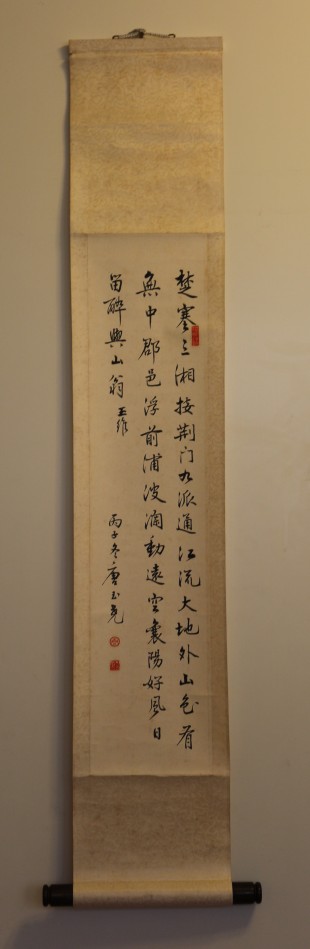 楚塞三湘接荆门九派通江流大地外山色有
無中郡邑浮前浦波瀾動遠空襄陽好風日
留醉與山翁 王維
丙子冬唐玉